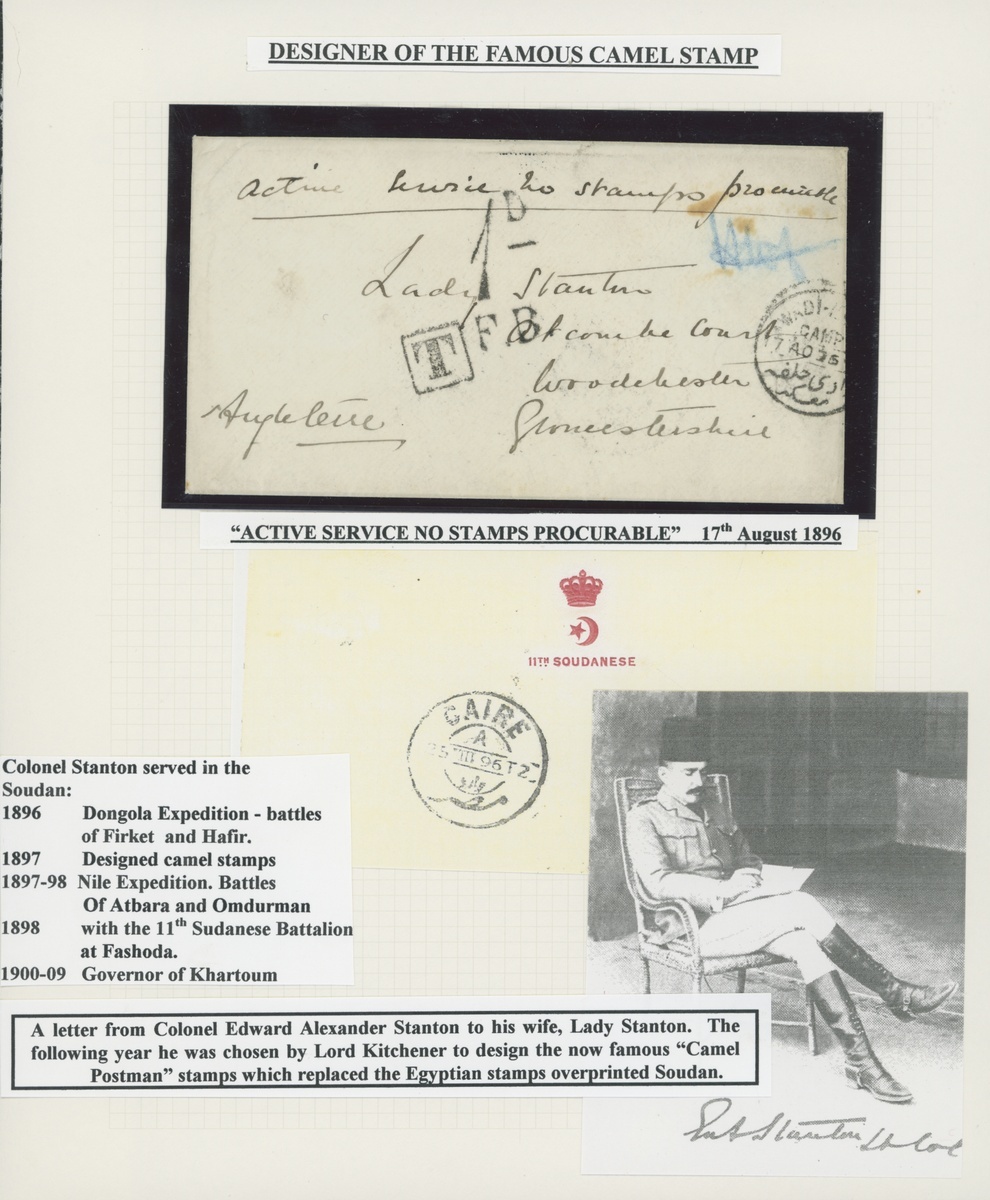 DESIGNER OF THE FAMOUS CAMEL STAMP
Active Service No stamps procurable
1D
Lady Stanton
T
F.B.
Atcombe Court
Woodchester
Gloucestershire
Angleterre
WADI-
CAMP
17 AO 96
وادى حلفه
معسكر
“ACTIVE SERVICE NO STAMPS PROCURABLE” 17th August 1896
11TH SOUDANESE
CAIRE
A
VIII 96 T2
Colonel Stanton served in the
Soudan:
1896 Dongola Expedition - battles
of Firket and Hafir.
1897 Designed camel stamps
1897-98 Nile Expedition. Battles
Of Atbara and Omdurman
1898 with the 11th Sudanese Battalion
at Fashoda.
1900-09 Governor of Khartoum
A letter from Colonel Edward Alexander Stanton to his wife, Lady Stanton. The
following year he was chosen by Lord Kitchener to design the now famous “Camel
Postman” stamps which replaced the Egyptian stamps overprinted Soudan.
Stanton Lt Col